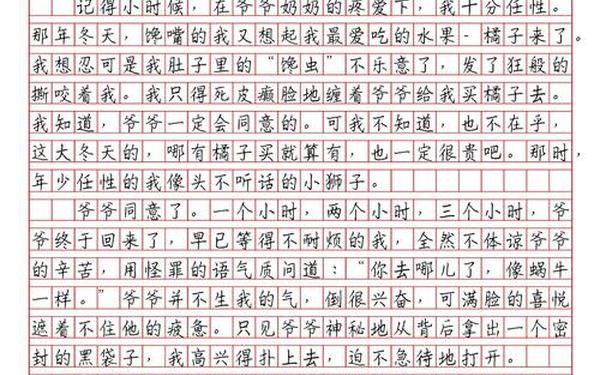 记得小时候，在爷爷奶奶的疼爱下，我十分任性。
那年冬天，馋嘴的我又想起我最爱吃的水果-橘子来了。
我想忍可是我肚子里的“馋虫”不乐意了，发了狂般的
撕咬着我。我只得死皮癞脸地缠着爷爷给我买橘子去。
我知道，爷爷一定会同意的。可我不知道，也不在乎，
这大冬天的，哪有橘子买就算有，也一定很贵吧。那时，
年少任性的我像头不听话的小狮子。
爷爷同意了。一个小时，两个小时，三个小时，爷
爷终于回来了，早已等得不耐烦的我，全然不体谅爷爷
的辛苦，用怪罪的语气质问道：“你去哪儿了，像蜗牛
一样。”爷爷并不生我的气，倒很兴奋，可满脸的喜悦
遮着不住他的疲惫。只见爷爷神秘地从背后拿出一个密
封的黑袋子，我高兴得扑上去，迫不急待地打开。